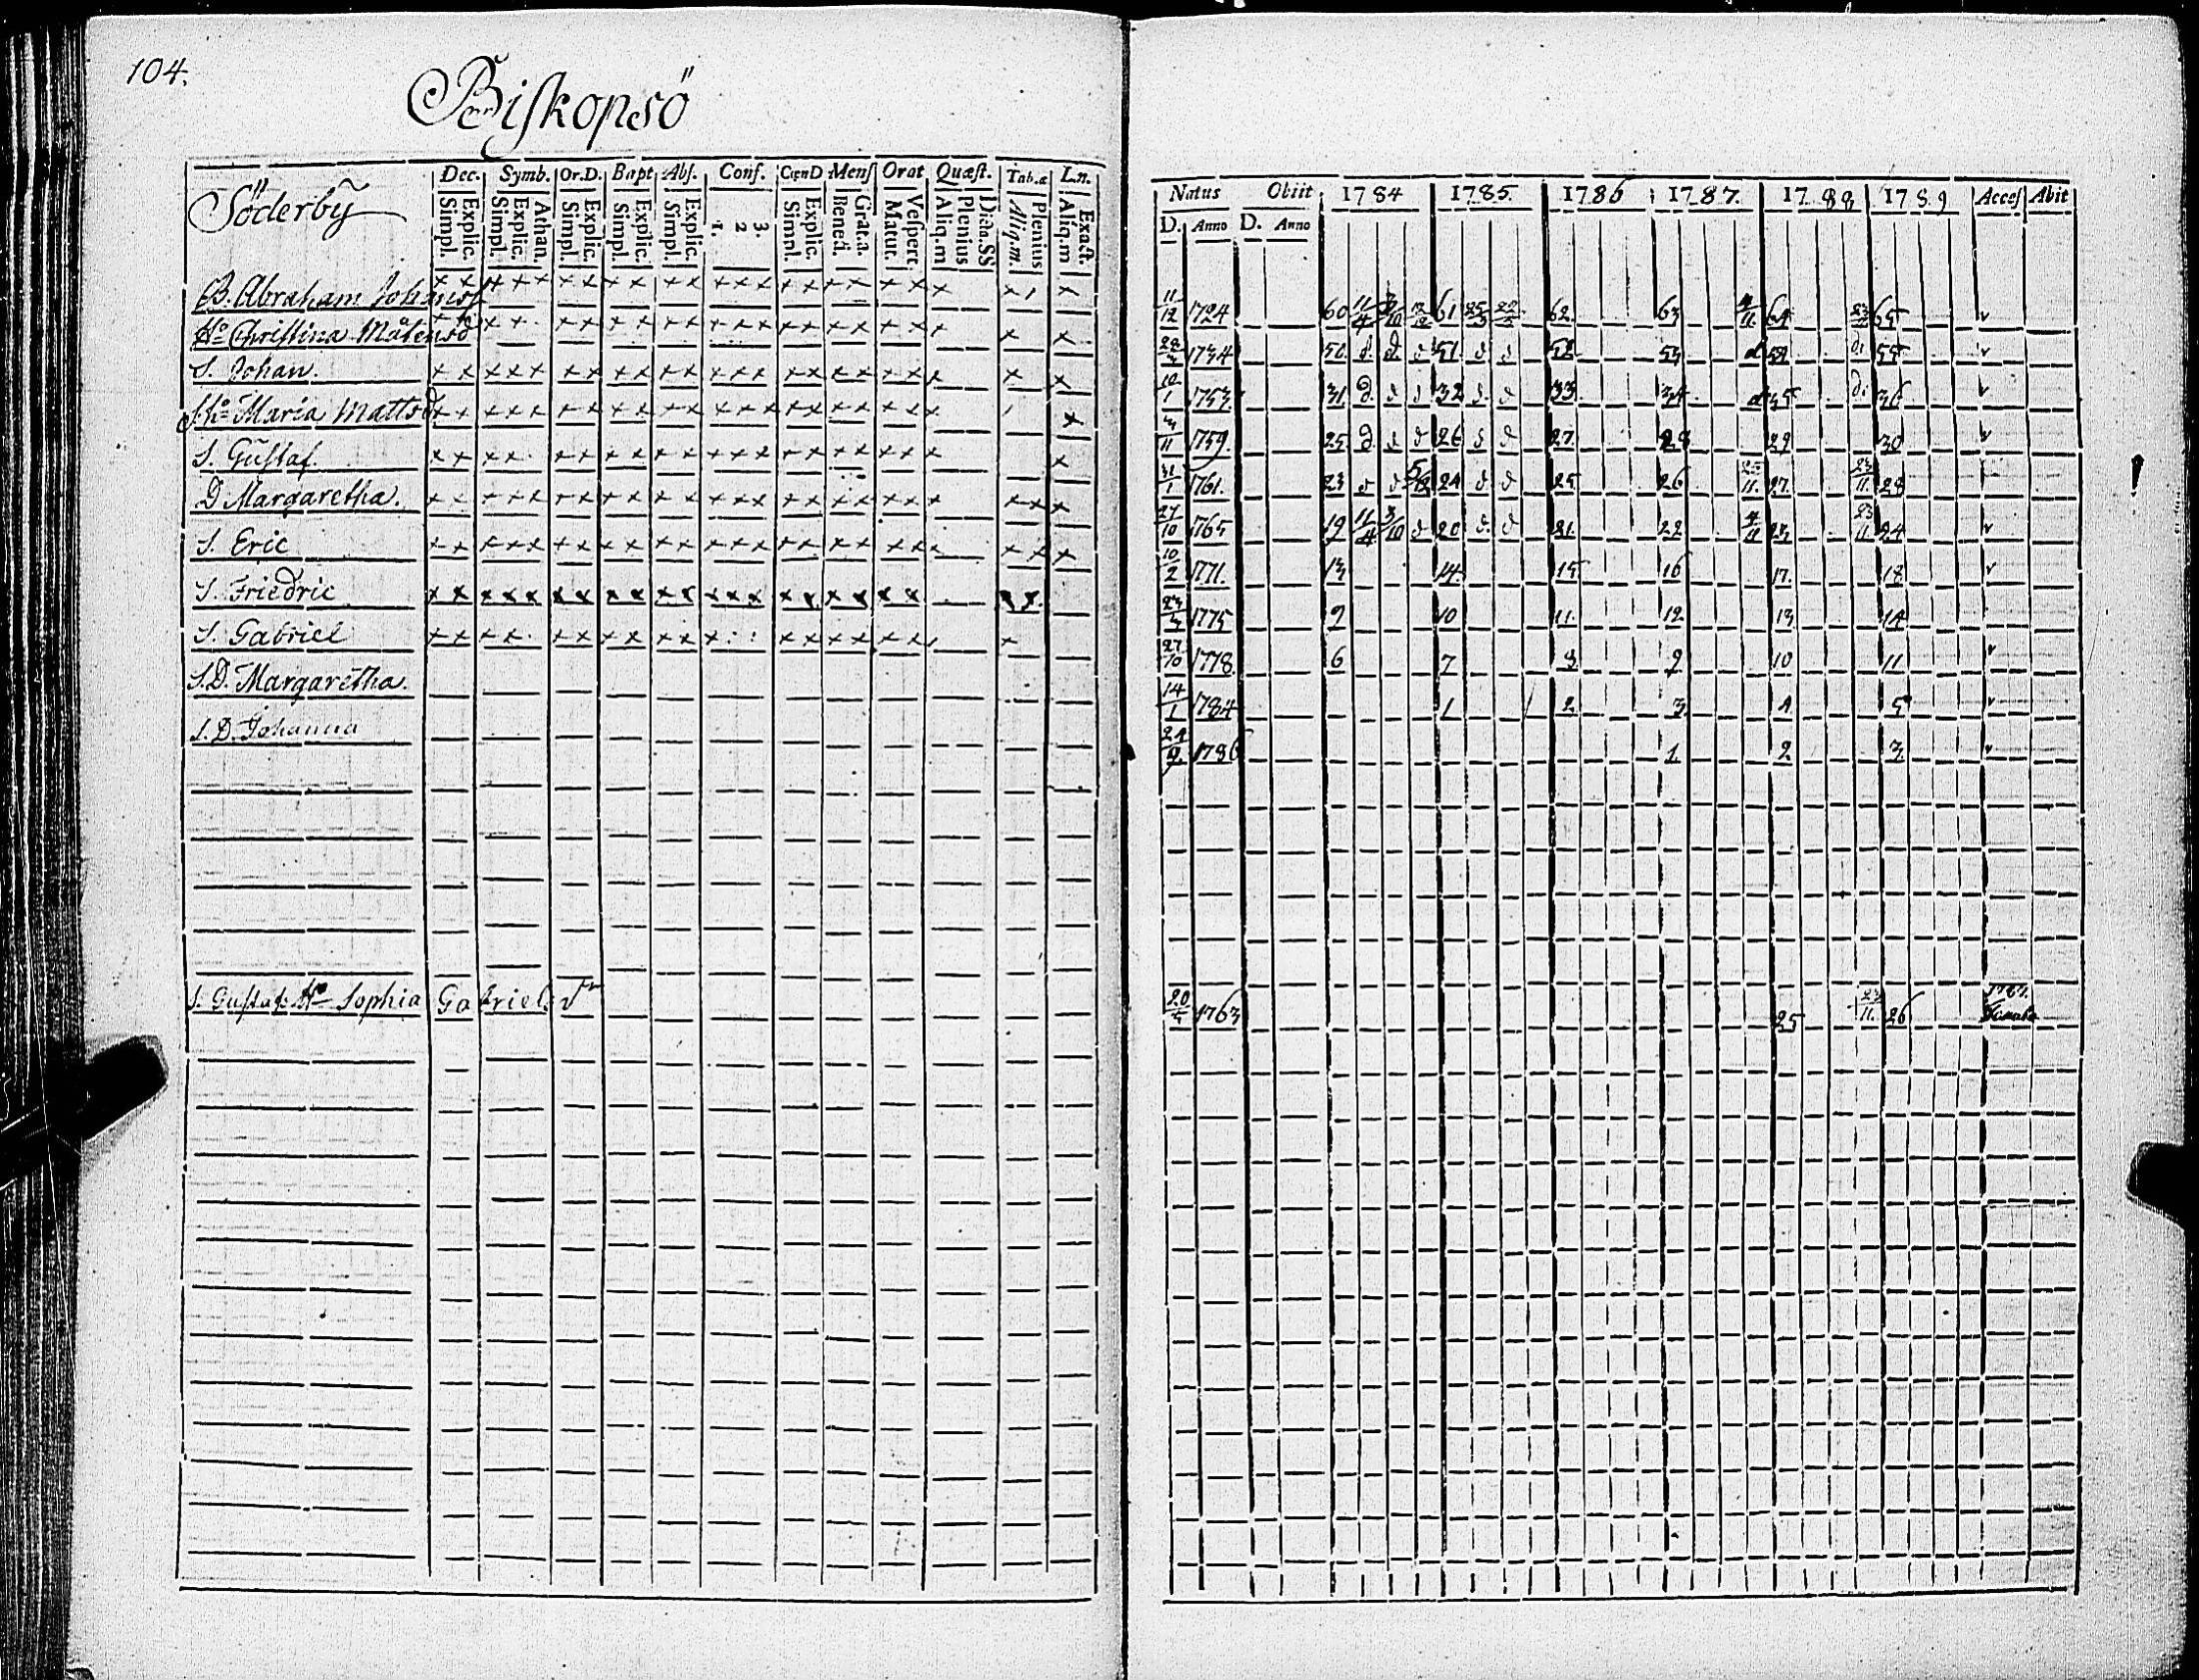 104.
Biskopsö
Söderby
Dec. Symb. Or.D. Bapt. Abs. Conf. CœnD Mens Orat Quæst. Tab.æ L.n.
Simpl. Explic. Simpl. Explic. Athan. Simpl. Explic. Simpl. Explic. Simpl. Explic. 1. 2 3. Simpl. Explic. Bened. Grat.a. Matut. Vespert Aliq.m Plenius Dicta.SS Aliq.m. Plenius Aliq.m Exact.
B. Abraham Johans
H:o Christina Matsens
S. Johan.
S. H:o Maria Mattsd.
S. Gustaf.
D Margaretha.
S. Eric
S. Friedric
S. Gabriel
S.D. Margaretha.
S.D. Johanna
S. Gustafs H:o Sophia Gabriels dr
Natus Obiit 1784 1785. 1786 1787. 1788 1789 Acces Abit
D. Anno D. Anno
11/12 1724 60 11/4 3/10 61 62. 63 4/11. 64 65 v
1734 50. d. d. d 51. d d 52 53 d 54 di 55 v
10/1 1753. 31 d. d d 32 d. d 33. 34. d 35 di 36 v
1759. 25. d. d d 26 d d 27. 28 29 30 v
31/1 1761. 23 d d 24 d d 25 26 25/11. 27. 23/11. 28
27/10 1765 19 11/4 3/10 d 20 d. d 21. 22 4/11 23 23/11. 24 v
10/2 1771. 13 14. 15 16 17. 18 v
1775 9 10 11. 12 13 14
27/10 1778. 6 7 8 9 10 11 v
14/1 1784 1 2. 3. 4 5 v
24/9. 1786 1. 2 3. v
1763 25 23/11. 26 1787.